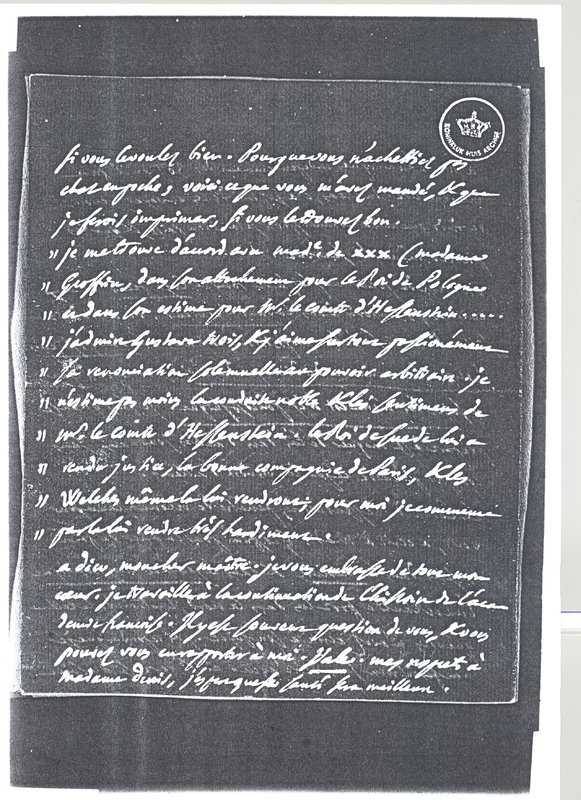 KONINKLIJK HUIS ARCHIEF
si vous le voulez bien. Pour que vous n'achettiez pas
chat en poche, voici ce que vous m'avez mandé, & que
je ferois imprimer, si vous le trouvez bon.
" je me trouve d'accord avec made. de xxx (madame
" Geoffrin, dans son attachement pour le Roi de Pologne
" et dans son estime pour Mr. le comte d'Hessenstein.....
" j'admire Gustave trois, & j'aime surtout passionément
" sa renonciation solemnelle au pouvoir arbitraire. je
" n'estime pas moins la conduite noble & les sentimens de
" Mr. le comte d'Hessenstein. le Roi de Suede lui a
" rendu justice, la bonne compagnie de Paris, & les
" Welches même la lui rendront; pour moi je commence
" par la lui rendre très hardiment.
adieu, mon cher maître. je vous embrasse de tout mon
cœur. je travaille à la continuation de l'histoire de l'aca
demie francoise. Il y est souvent question de vous, & vous
pouvez vous en rapporter à moi. Vale. mes respects à
madame Denis, j'espere que sa santé sera meilleure.